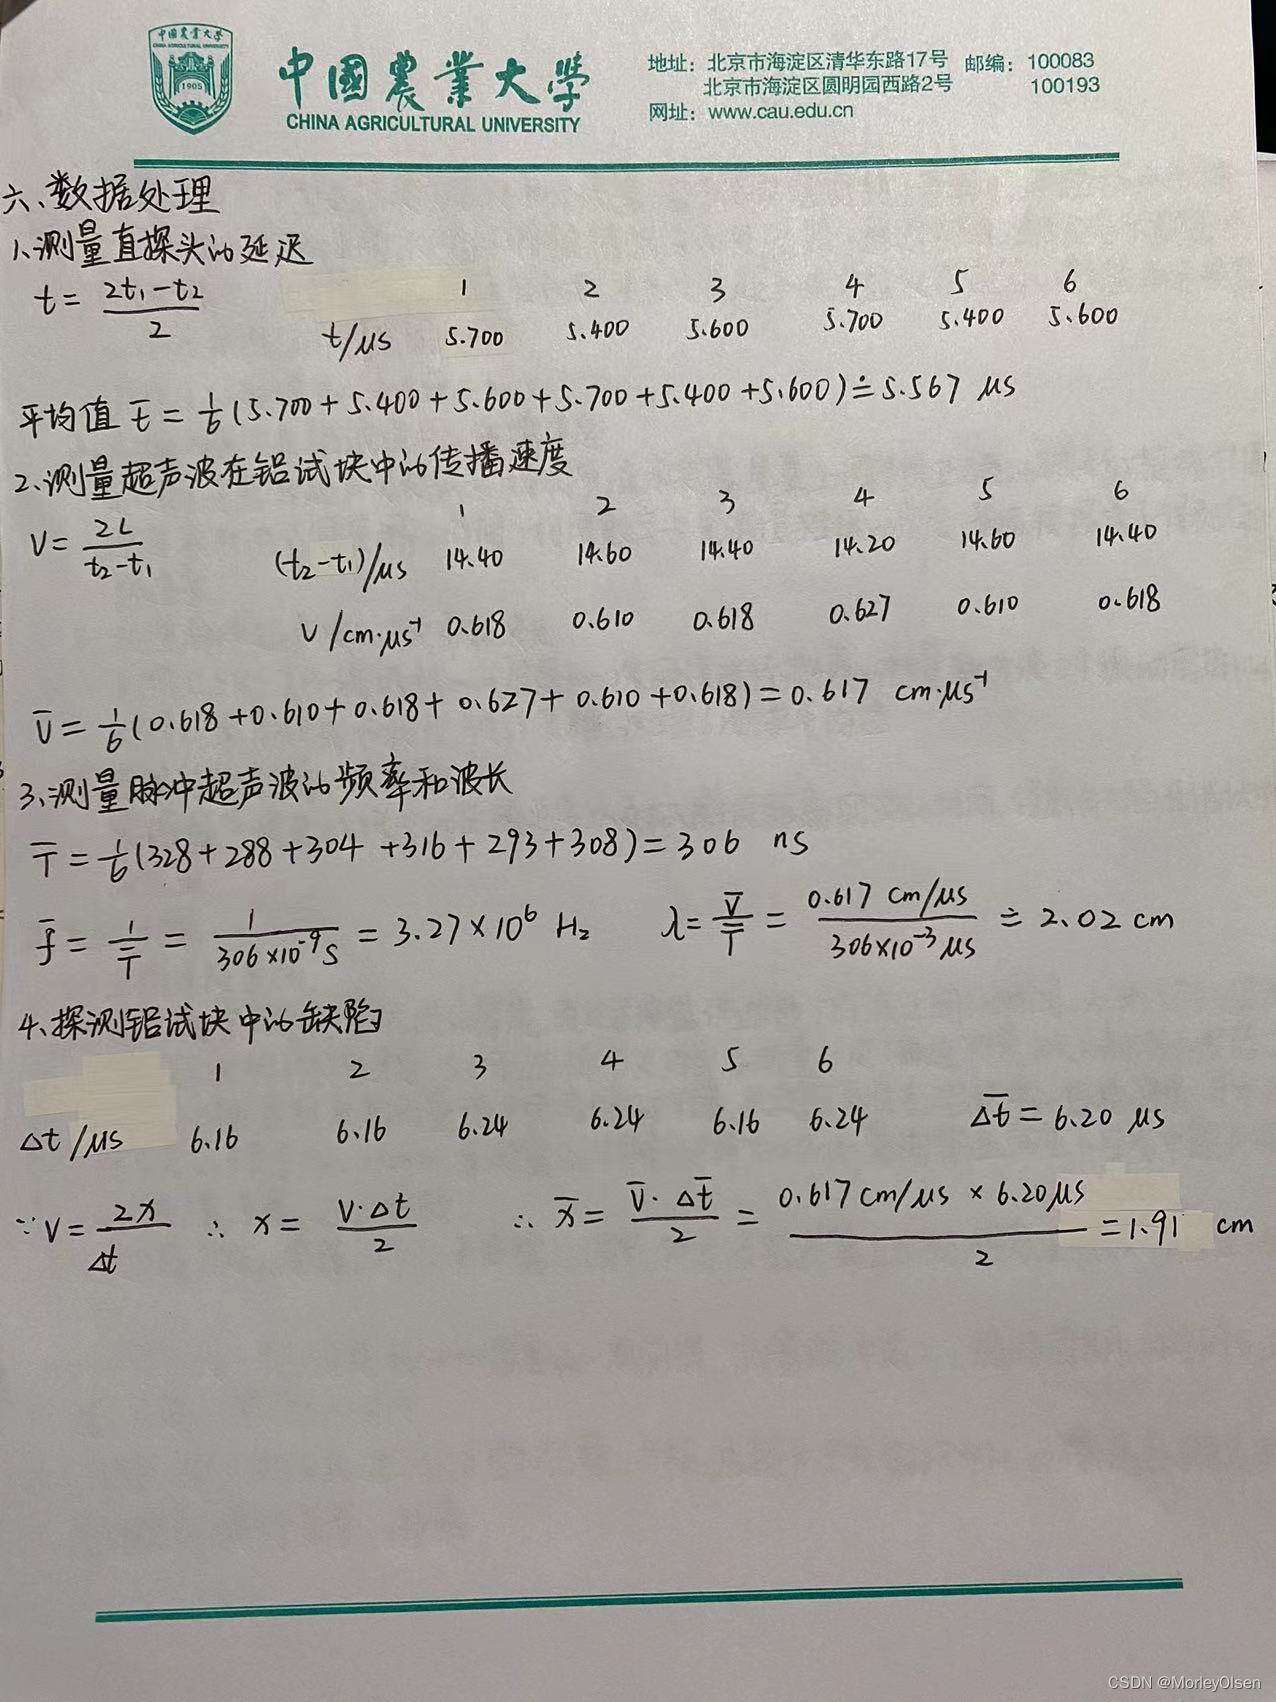 中國農業大學
CHINA AGRICULTURAL UNIVERSITY
1905
中国农业大学
CHINA AGRICULTURAL UNIVERSITY
地址：北京市海淀区清华东路17号 邮编：100083
北京市海淀区圆明园西路2号 100193
网址：www.cau.edu.cn
六、数据处理
1、测量直探头的延迟
t = (2t₁-t₂)/2
1 2 3 4 5 6
t/μs 5.700 5.400 5.600 5.700 5.400 5.600
平均值 t̅ = 1/6 (5.700+5.400+5.600+5.700+5.400+5.600) ≐ 5.567 μs
2、测量超声波在铝试块中的传播速度
1 2 3 4 5 6
V = 2L/(t₂-t₁) (t₂-t₁)/μs 14.40 14.60 14.40 14.20 14.60 14.40
V/cm·μs⁻¹ 0.618 0.610 0.618 0.627 0.610 0.618
V̅ = 1/6 (0.618+0.610+0.618+0.627+0.610+0.618) = 0.617 cm·μs⁻¹
3、测量脉冲超声波的频率和波长
T̅ = 1/6 (328+288+304+316+293+308) = 306 ns
f̅ = 1/T̅ = 1/(306×10⁻⁹s) = 3.27×10⁶ Hz λ = V̅/T̅ = (0.617 cm/μs)/(306×10⁻³ μs) ≐ 2.02 cm
4、探测铝试块中的缺陷
1 2 3 4 5 6
Δt/μs 6.16 6.16 6.24 6.24 6.16 6.24 Δt̅ = 6.20 μs
∵ V = 2x/Δt ∴ x = V·Δt/2 ∴ x̅ = V̅·Δt̅/2 = (0.617cm/μs × 6.20μs)/2 = 1.91 cm
CSDN @MorleyOlsen